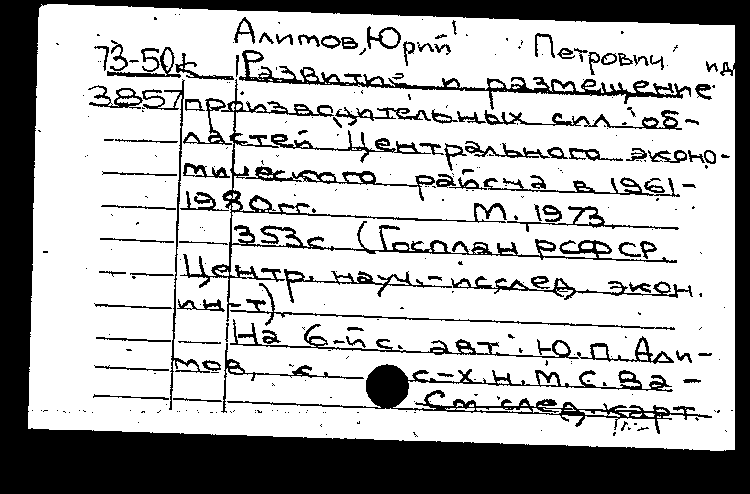 Алимов, Юрий Петрович
73-50к Развитие и размещение
3857 производительных сил об-
ластей Центрального эконо-
мического района в 1961-
1980гг. М., 1973.
353с. (Госплан РСФСР.
Центр. науч.-исслед. экон.
ин-т).
На 6-й с. авт.: Ю.П. Али-
мов, к. с.-х.н. М.С. Ва-
См след. карт.